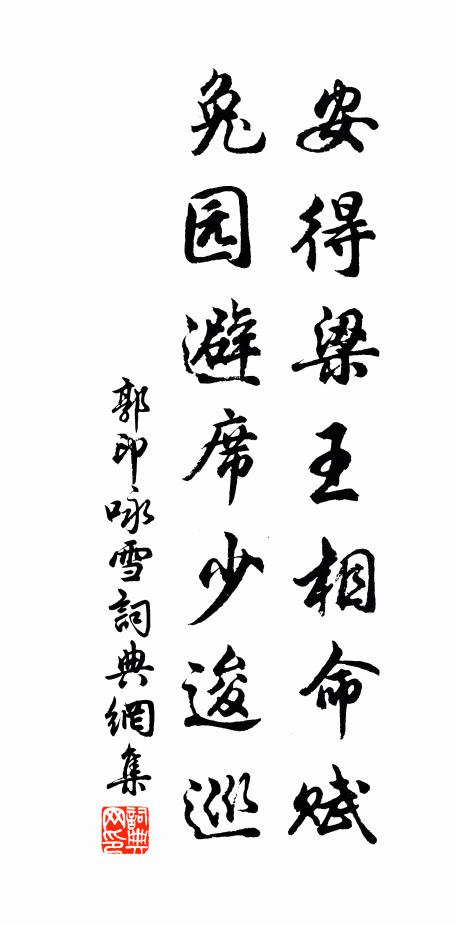 安得梁王相命赋
兔园避席少逡巡
郭印咏雪詞典網集
詞典网印